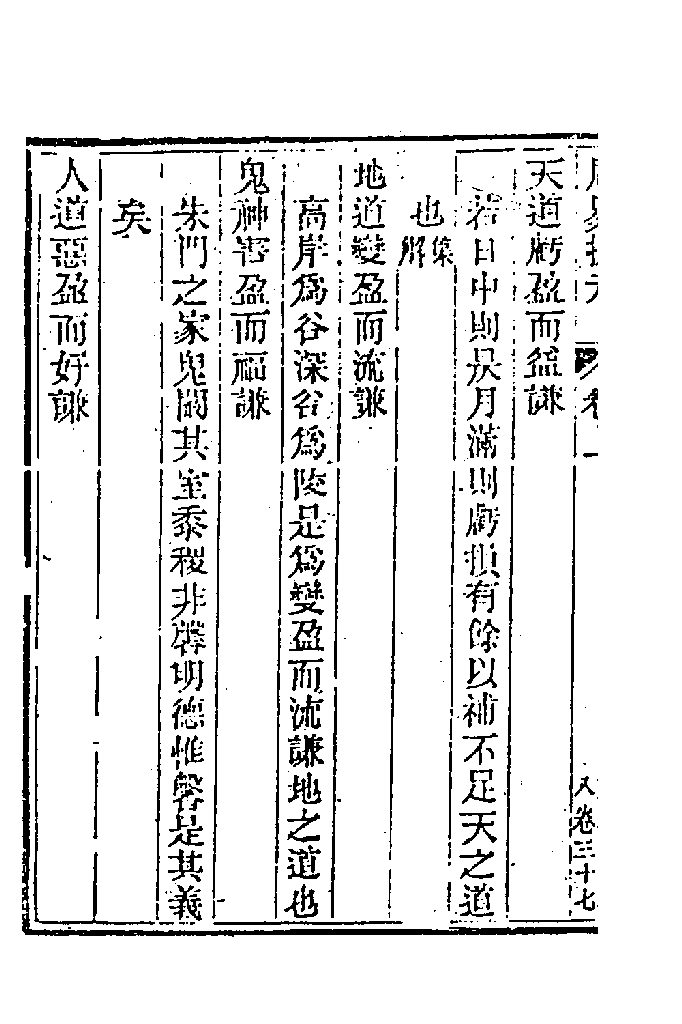 天道虧盈而益謙
若日中則昃月滿則虧損有餘以補不足天之道
也集解
地道變盈而流謙
高岸爲谷深谷爲陵是爲變盈而流謙地之道也
鬼神害盈而福謙
朱門之家鬼闞其室黍稷非馨明德惟馨是其義
矣
人道惡盈而好謙
卷三十七